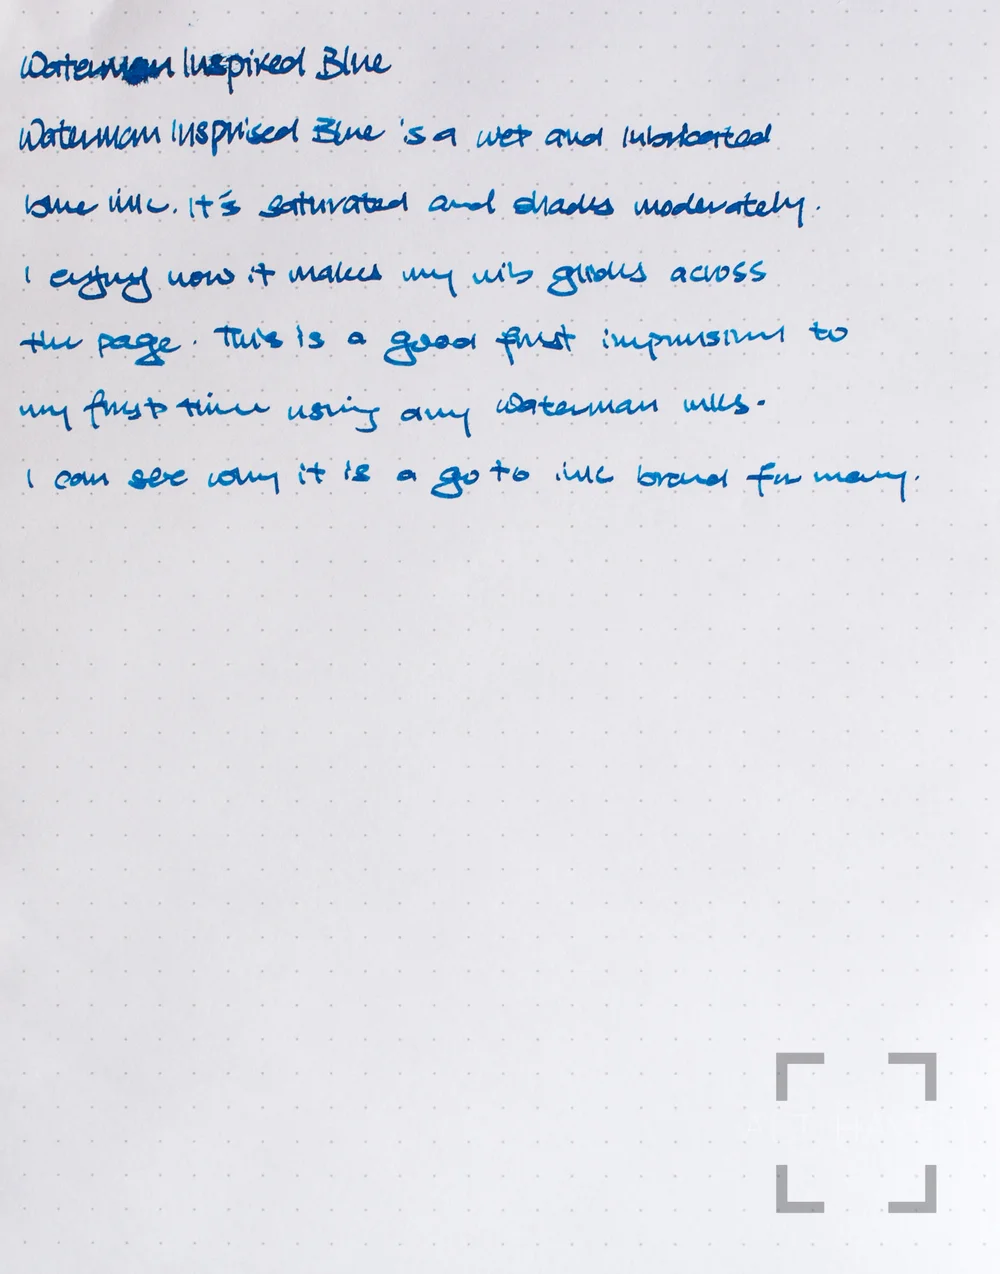 Waterman Inspired Blue
Waterman Insprised Blue is a wet and lubricated
blue ink. It's saturated and shades moderately.
I enjoy how it makes my nib glides across
the page. This is a good first impression to
my first time using any Waterman inks.
I can see why it is a go to ink brand for many.